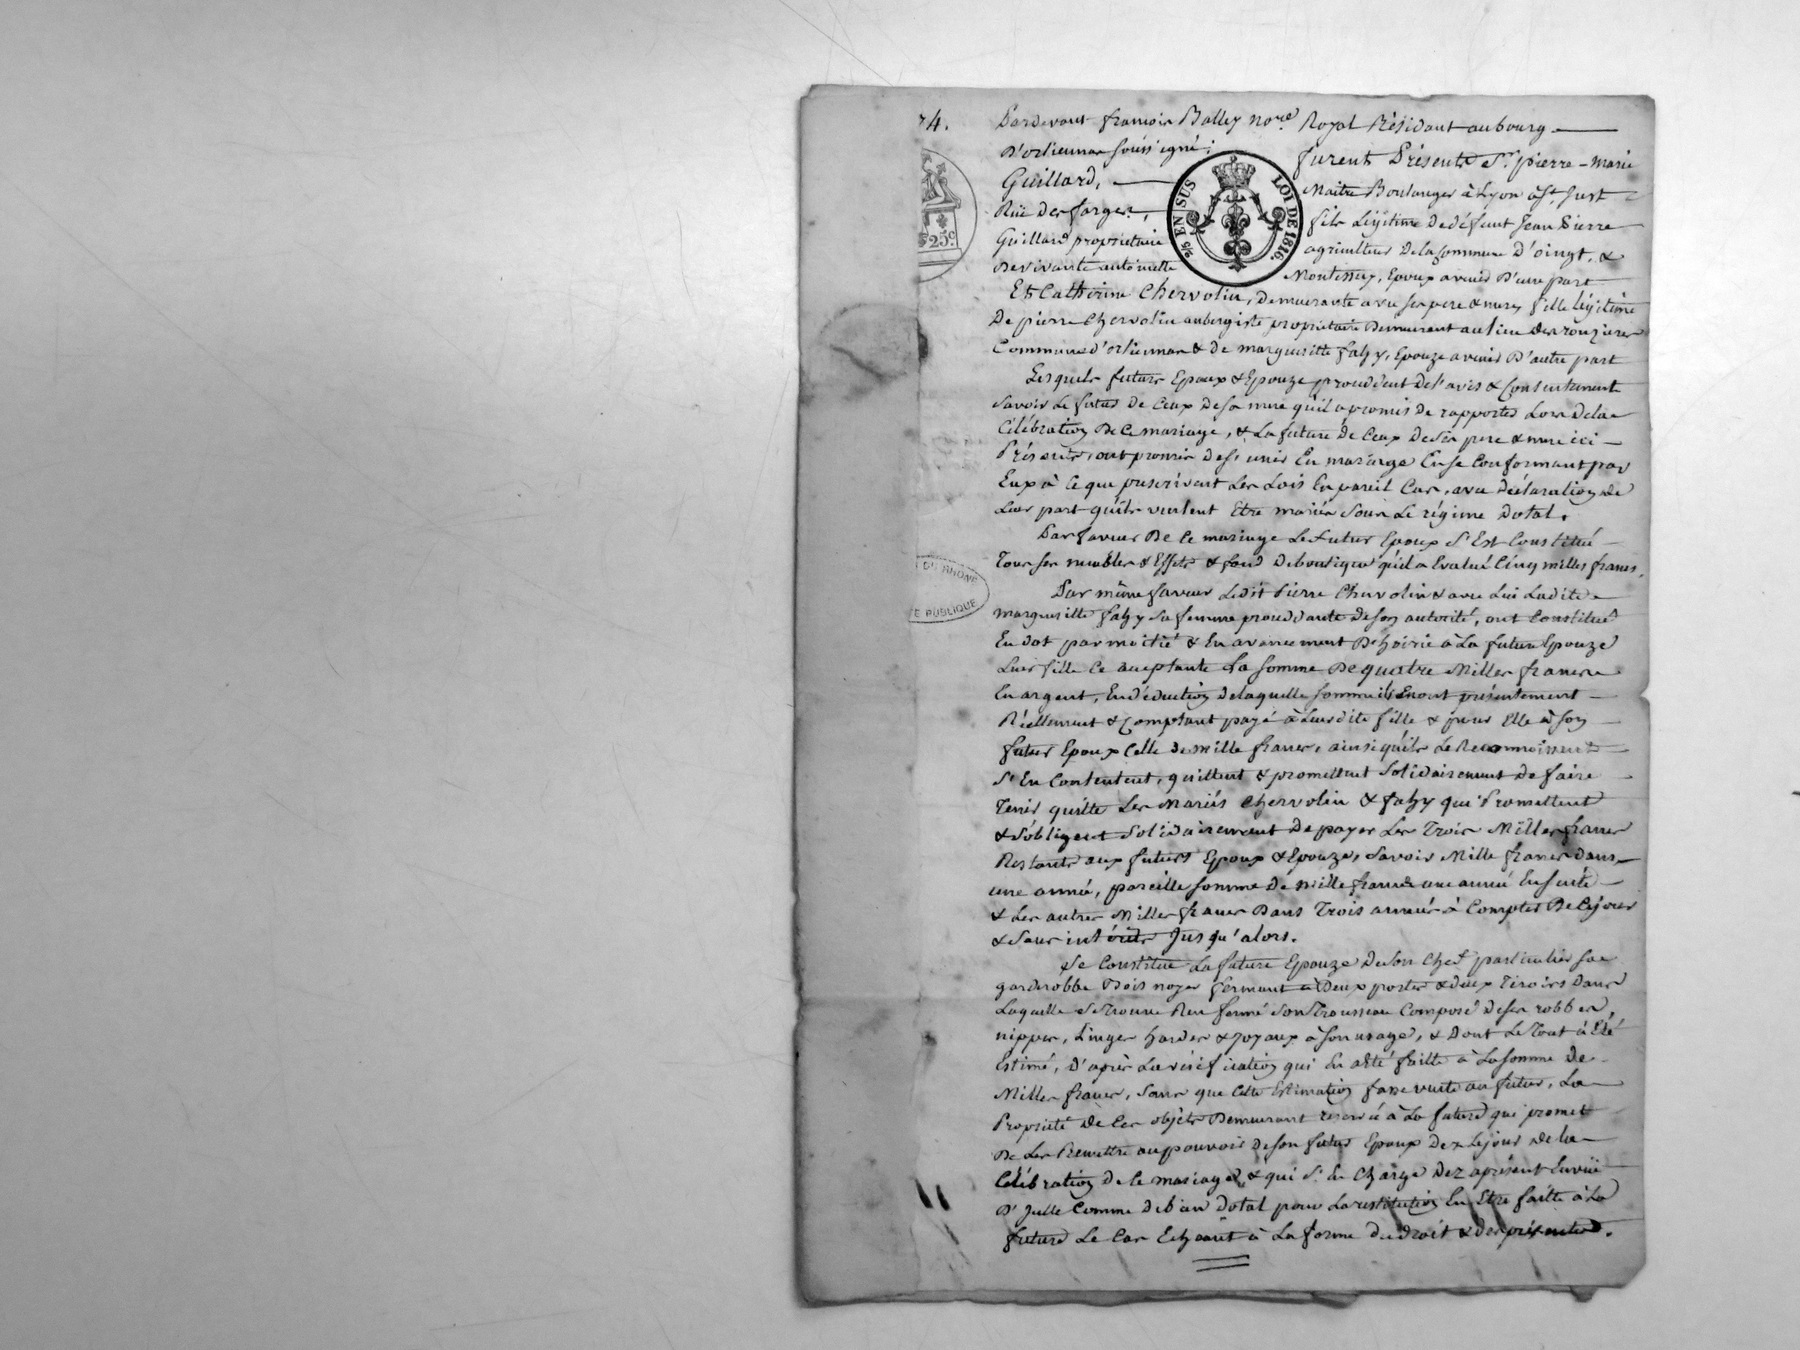 74.
Pardevant françois Balley no.re Royal Résidant au bourg
D'orliennas soussigné;
furent Présents Sr. pierre-marie
Guillard,
Maitre Boulanger à Lyon à St. Just
Rüe des farges,
fils Légitime de défunt Jean Pierre
Guillard propriétaire
agriculteur de la Commune D'oingt, &
De vivante antoinette
Montessuy, Epoux avenir D'une part
2/5 EN SUS
LOI DE 1816.
25c.
Et Catherine Chervolin, Demeurante avec ses pere & mere, fille légitime
De pierre Chervolin aubergiste propriétaire Demeurant au lieu des
Commune d'orliennas & de margueritte fahy, Epouze avenir D'autre part
Lesquels futurs Epoux & Epouze procédent de l'avis & Consentement
Savoir Le futur de Ceux de sa mere qu'il a promis de rapporter Lors de la
Célébration De Ce mariage, & La future de Ceux de ses pere & mere ici
Présents, ont promis de s'unir En mariage En se Conformant par
Eux à Ce que prescrivent Les Lois En pareil Cas, avec déclaration de
Leur part qu'ils veulent Etre mariés sous Le régime Dotal.
Par faveur De Ce mariage Le futur Epoux S'Est Constitué
Tous ses meubles & Effets & fond de boutique qu'il a Evalué Cinq milles francs.
DU RHÔNE
PUBLIQUE
Par même faveur Ledit Pierre Chervolin & avec Lui Ladite
margueritte fahy sa femme procédante de son autorité, ont Constitué
En dot par moitié & En avancement D'hoirie à La future Epouze
Leur fille Ce acceptante La somme De quatre Milles francs
En argent, En déduction de laquelle somme ils En ont présentement
Réellement & Comptant payé à Leurdite fille & pour Elle à son
futur Epoux Celle de mille francs, ainsi qu'ils Le Reconnoissent
S'En Contentent, quittent & promettent Solidairement de faire
Tenir quitte Les Mariés Chervolin & fahy qui Promettent
& S'obligent Solidairement De payer Les Trois Milles francs
Restants aux futurs Epoux & Epouze, Savoir Mille francs dans
une année, pareille somme de Mille francs une année Ensuite
& Les autres Milles francs Dans Trois années à Compter De Ce jour
& Sans intérêts Jusqu'alors.
Se Constitue La future Epouze De Son Chef particulier sa
garderobbe Bois noyer fermant à Deux portes & deux Tiroirs Dans
Laquelle Se Trouve Renfermé Son Trousseau Composé de ses robbes,
nippes, Linges hardes & Joyaux à Son usage, & Dont Le Tout à Eté
Estimé, D'après La vérification qui En a été faitte à La Somme de
Milles francs, Sans que Cette Estimation fasse vente au futur, La
Propriété de Ces objets Demeurant reservé à La future qui promet
De Les Remettre au pouvoir de son futur Epoux Dez Le jour de la
Célébration de Ce mariage, & qui S'En Charge Dez aprésent
D' Comme de bien Dotal pour La restitution En Etre faitte à La
future Le Cas Echéant à La forme Du Droit & des présentes.